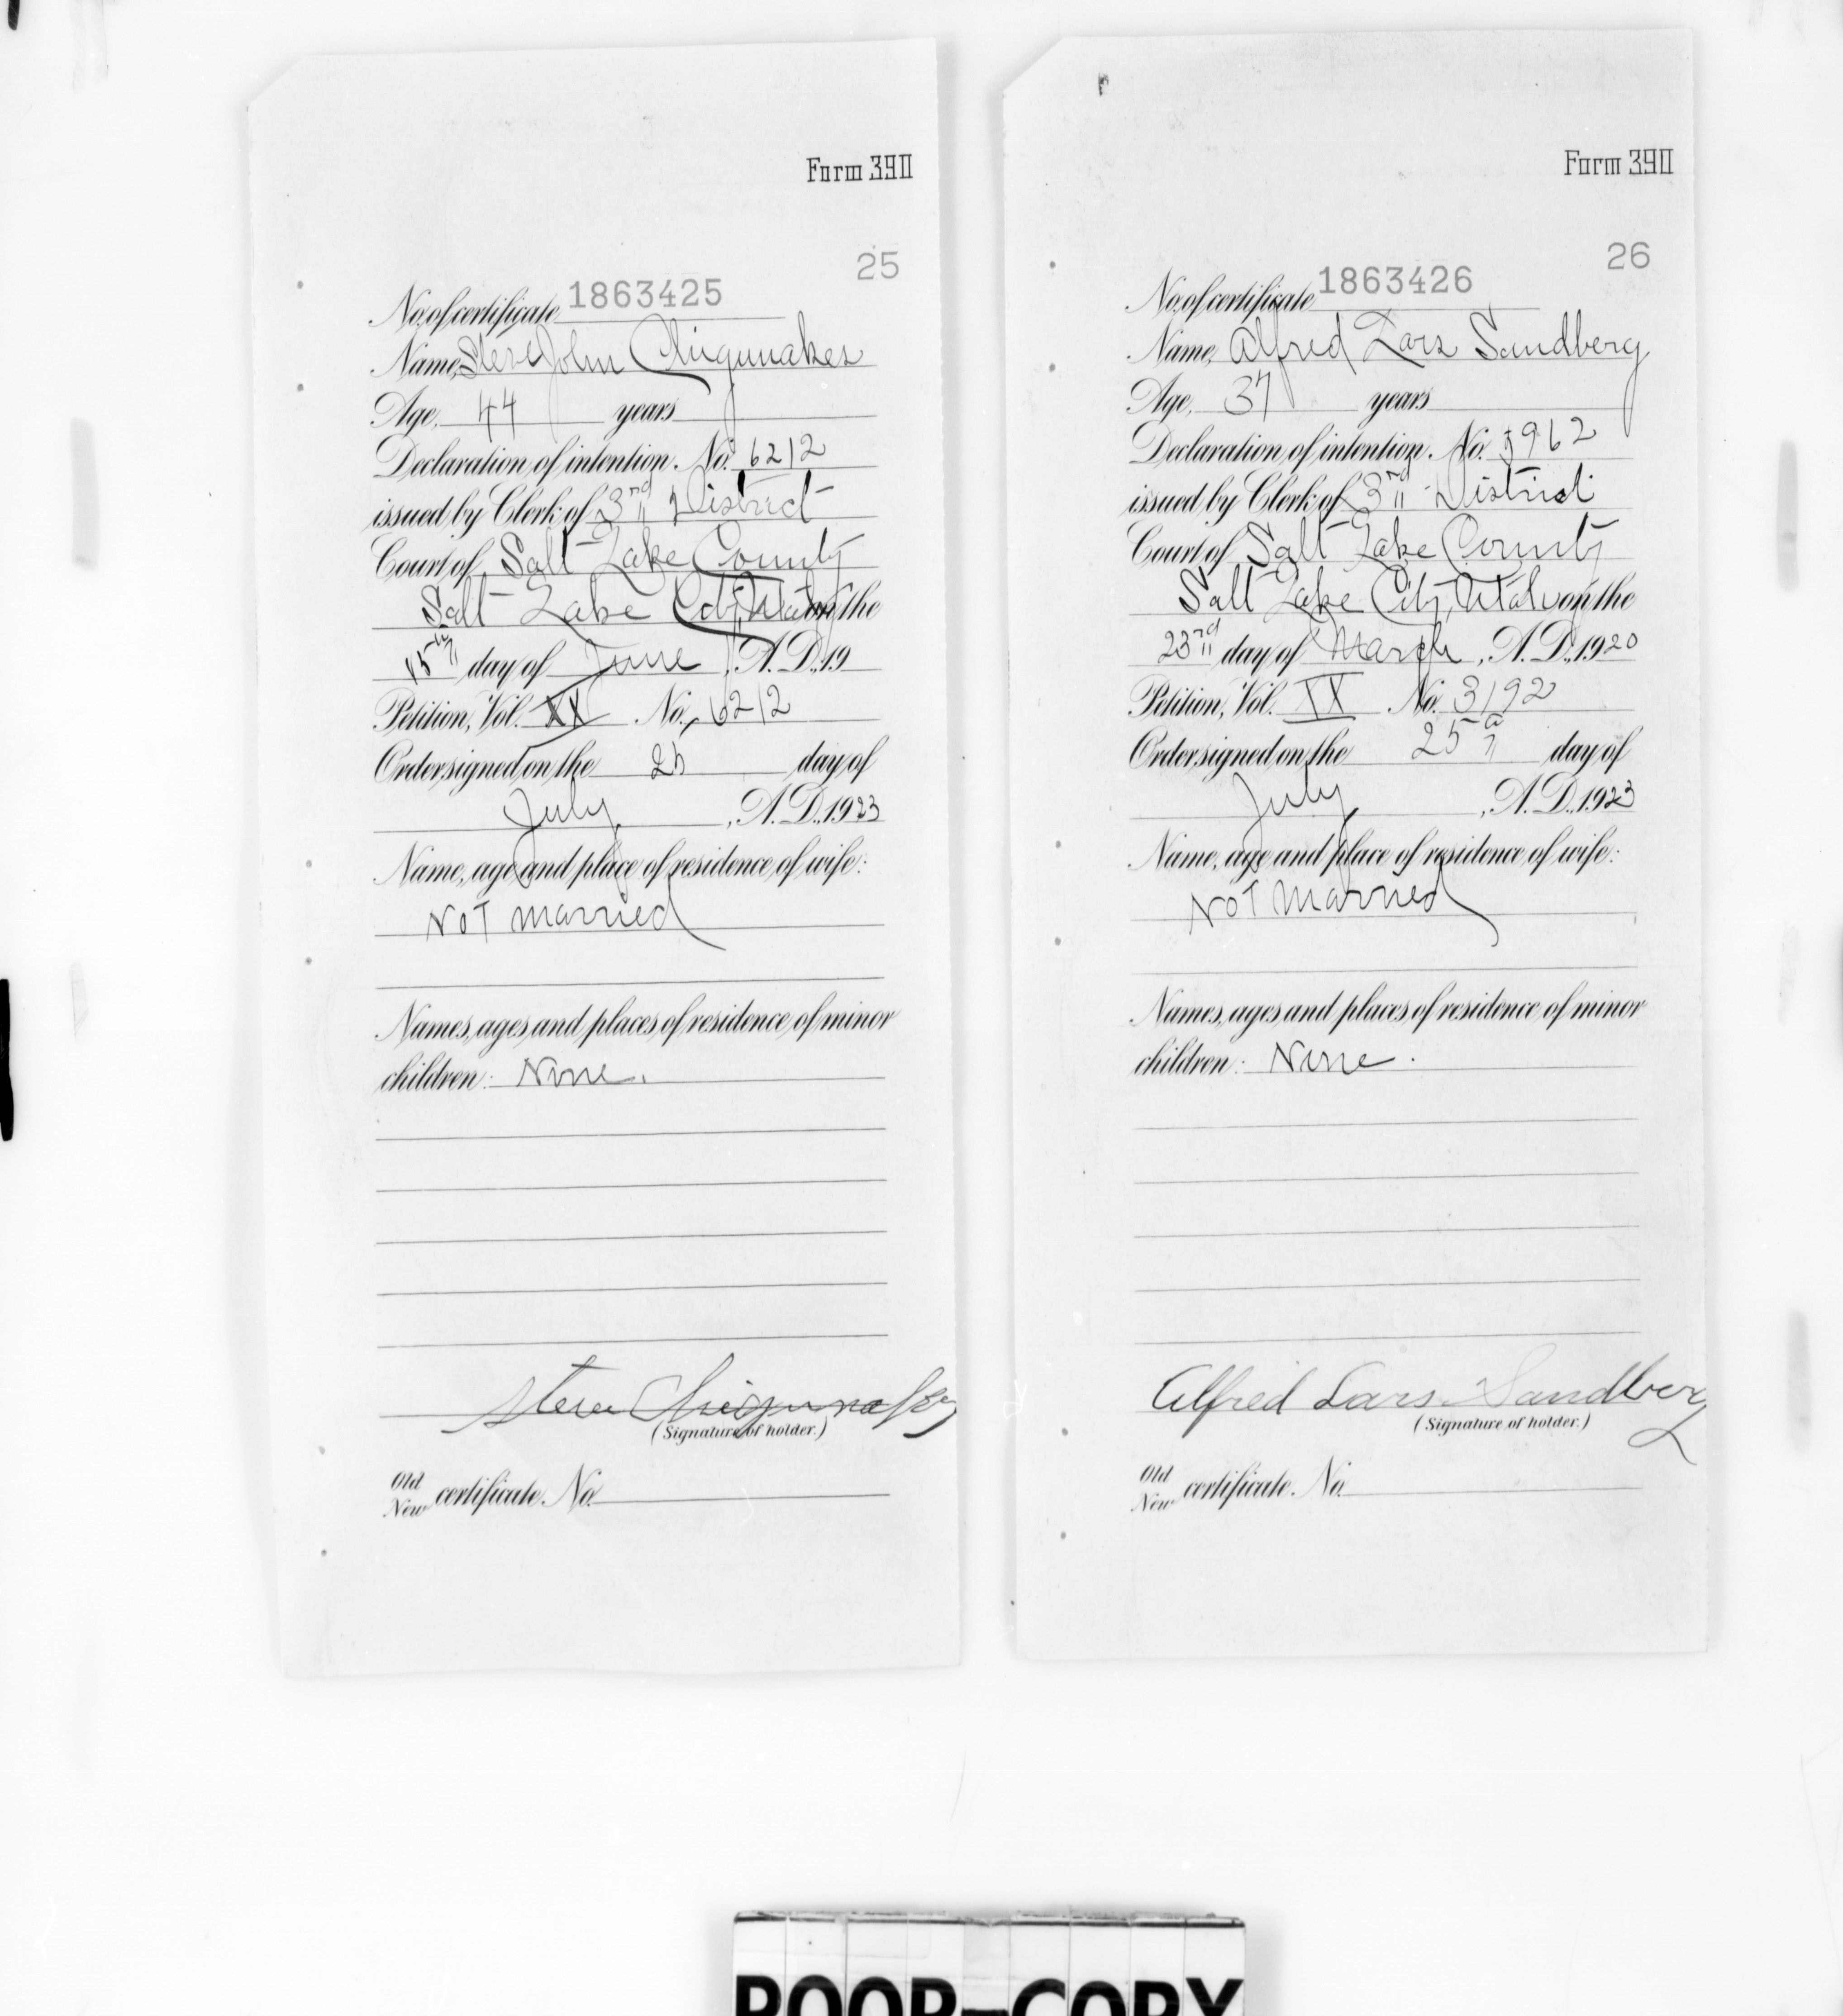 Form 390
25
No. of certificate 1863425
Name, Steve John
Age, 44 years
Declaration of intention. No. 6212
issued by Clerk of 3rd District
Court of Salt Lake County
Salt Lake City, Utah on the
15th day of June, A. D., 19
Petition, Vol. XX No. 6212
Order signed on the day of
July, A. D., 1923
Name, age and place of residence of wife:
Not married
Names, ages and places of residence of minor
children: None.
Steve
(Signature of holder.)
Old
New certificate. No.
Form 390
26
No. of certificate 1863426
Name, Alfred Lars Sandberg
Age, 37 years
Declaration of intention. No. 3962
issued by Clerk of 3rd District
Court of Salt Lake County
Salt Lake City, Utah on the
23rd day of March, A. D., 1920
Petition, Vol. No. 3192
Order signed on the 25th day of
July, A. D., 1923
Name, age and place of residence of wife:
Not married
Names, ages and places of residence of minor
children: None.
Alfred Lars Sandberg
(Signature of holder.)
Old
New certificate. No.
POOR-COPY